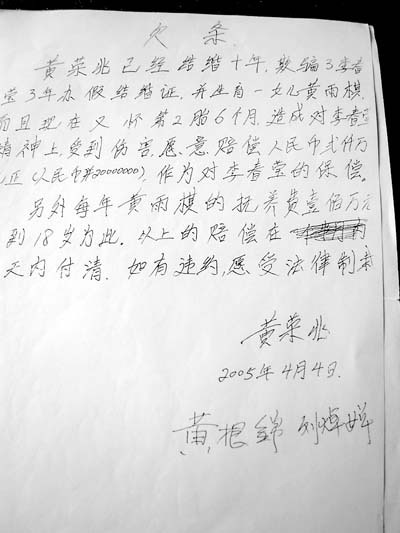 欠条
黄荣兆已经结婚十年.欺骗了李春
莹3年办假结婚证.并生育一女儿黄雨棋
而且现在又怀第2胎6个月.造成对李春莹
精神上,受到伤害.愿意赔偿人民币贰仟万
元正(人民币20000000)作为对李春莹的保偿.
另外每年黄雨棋的抚养费壹佰万元
到18岁为此.以上的赔偿在
天内付清.如有违约,愿受法律制裁
黄荣兆
2005年4月4日.
黄根